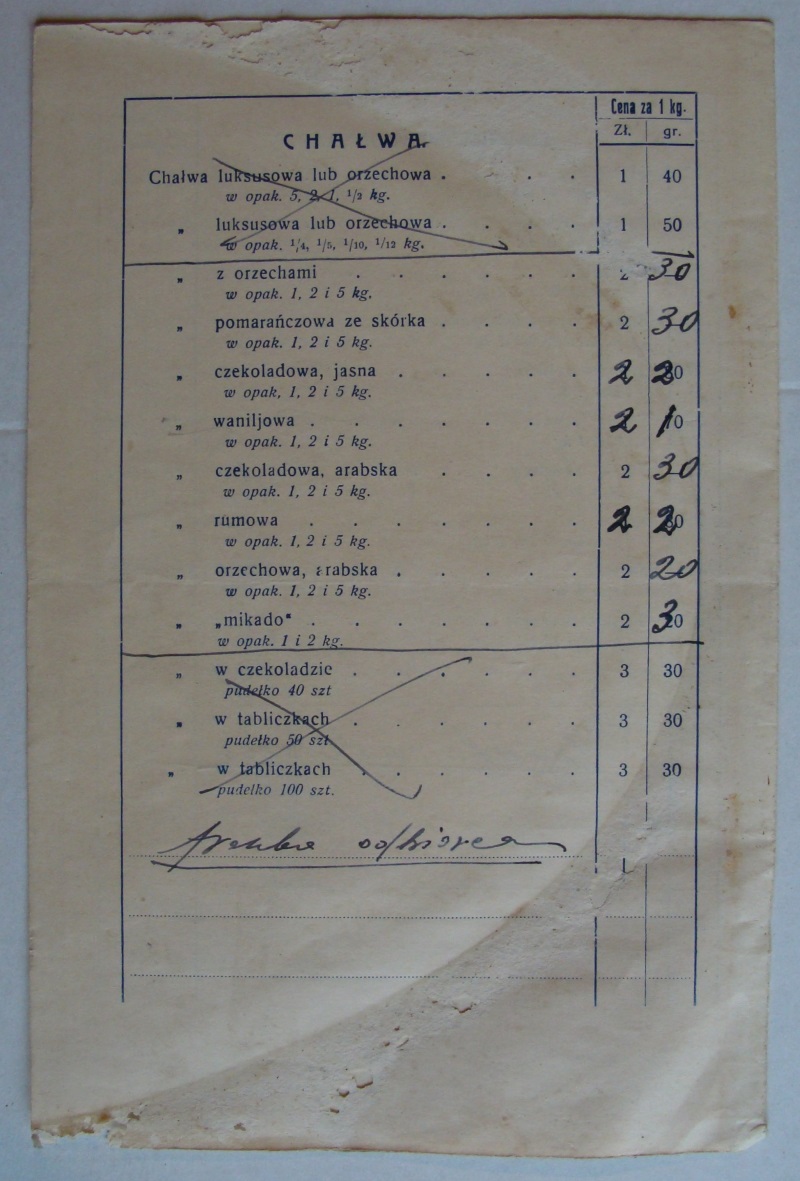 Cena za 1 kg.
Zł. gr.
CHAŁWA
Chałwa luksusowa lub orzechowa . . . 1 40
w opak. 5, 2, 1, 1/2 kg.
„ luksusowa lub orzechowa . . . . 1 50
w opak. 1/4, 1/5, 1/10, 1/12 kg.
„ z orzechami . . . . . . 30
w opak. 1, 2 i 5 kg.
„ pomarańczowa ze skórka . . . . 2 30
w opak. 1, 2 i 5 kg.
„ czekoladowa, jasna . . . . . 2 20
w opak, 1, 2 i 5 kg.
„ waniljowa . . . . . . . 2 10
w opak. 1, 2 i 5 kg.
„ czekoladowa, arabska . . . . 2 30
w opak. 1, 2 i 5 kg.
„ rumowa . . . . . . . 2 20
w opak. 1, 2 i 5 kg.
„ orzechowa, arabska . . . . . 2 20
w opak. 1, 2 i 5 kg.
„ „mikado" . . . . . . . 2 30
w opak. 1 i 2 kg.
„ w czekoladzie . . . . . . 3 30
pudełko 40 szt
„ w tabliczkach . . . . . . 3 30
pudełko 50 szt
„ w tabliczkach . . . . . . 3 30
pudełko 100 szt.